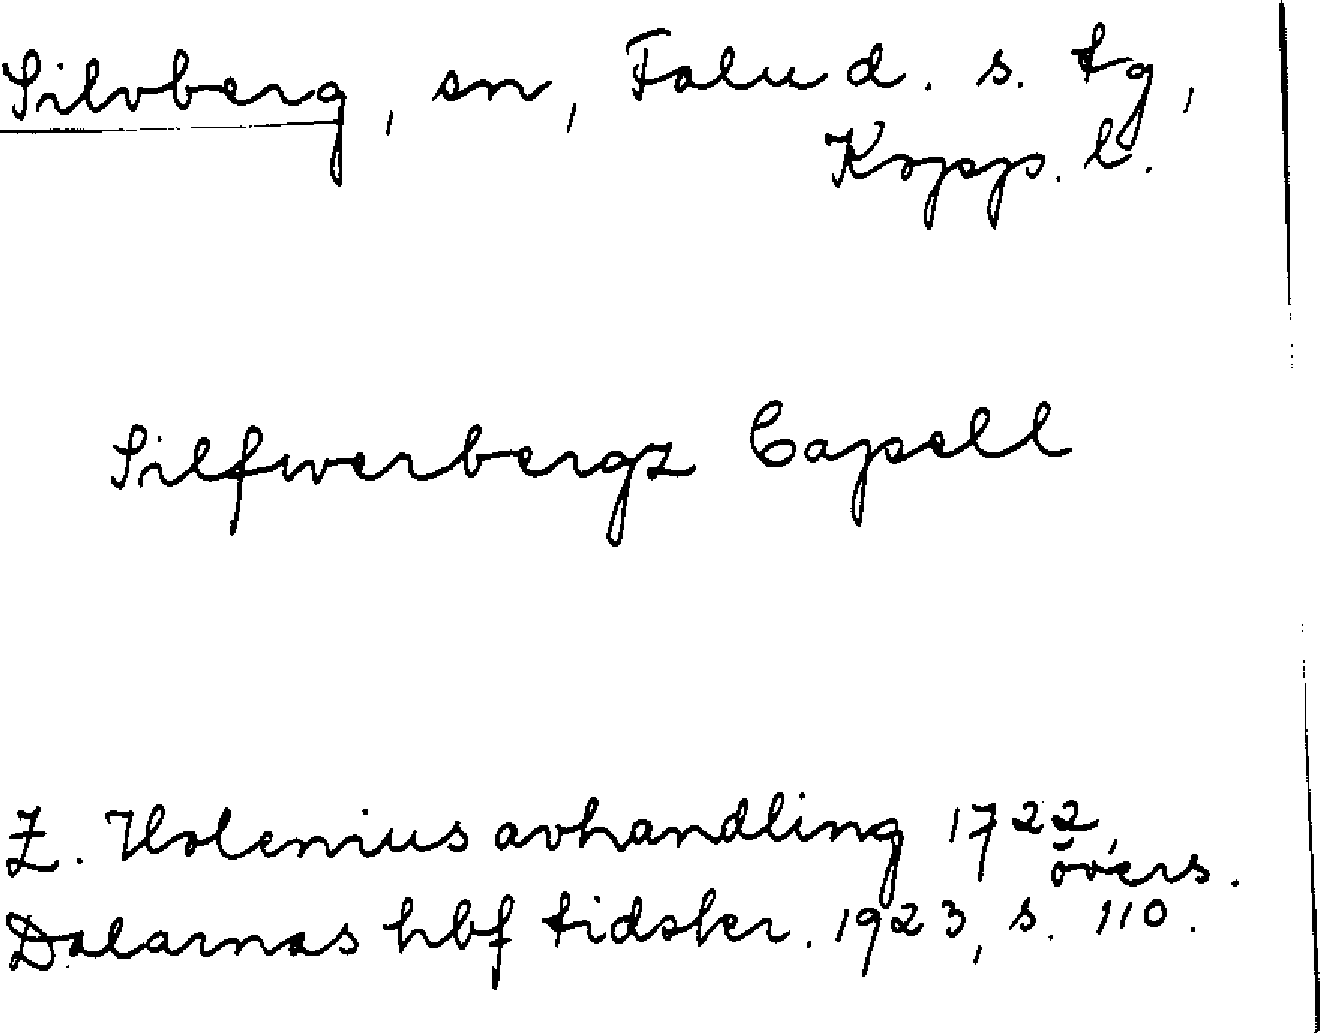 Silvberg, sn, Falu d. s. tg,
Kopp. l.
Silfwerbergz Capell
Z. Holenius avhandling 1722,
övers.
Dalarnas hbf tidskr. 1923, s. 110.